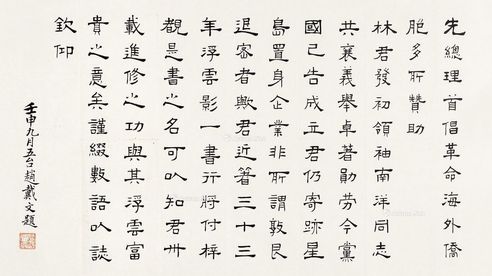 先總理首倡革命海外僑
胞多所贊助
林君發初領袖南洋同志
共襄義舉卓著勛勞今黨
國已告成立君仍寄跡星
島置身企業非所謂敦艮
退密者歟君近著三十三
年浮雲影一書行將付梓
覩是書之名可以知君卅
載進修之功與其浮雲富
貴之意矣謹綴數語以誌
欽仰
壬申九月五台趙戴文題